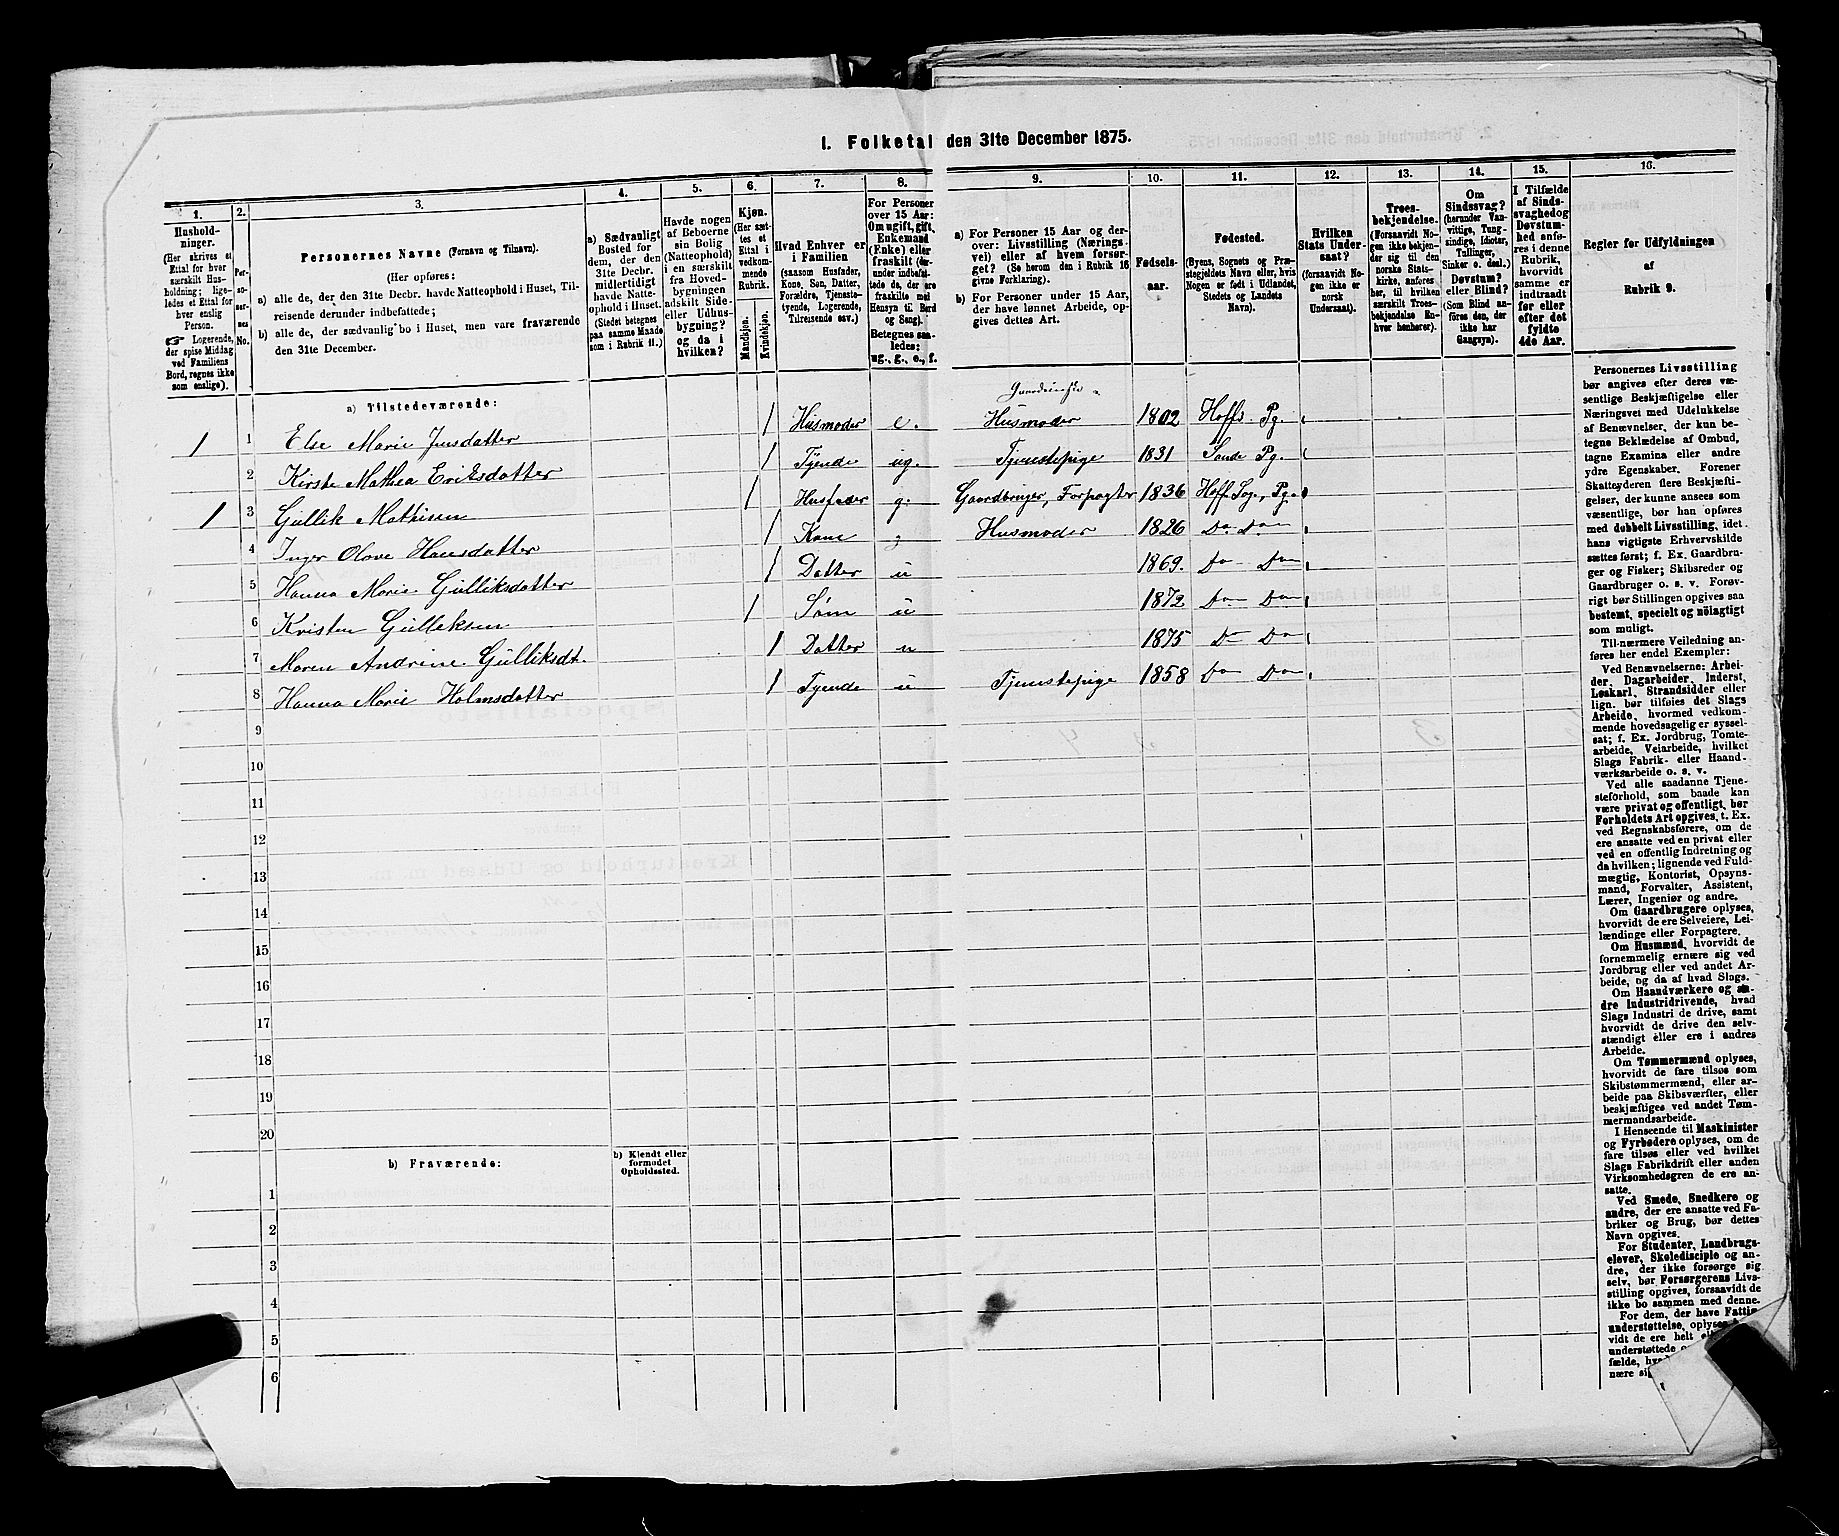 1. Folketal den 31te December 1875.
1.
2.
3.
4.
5.
6.
7.
8.
9.
10.
11.
12.
13.
14.
15.
16.
Hushold-
ninger.
(Her skrives et
Ettal for hver
særskilt Hus-
holdning; lige-
ledes et Ettal for
hver enslig
Person.
☞ Logerende,
der spise Middag
ved Familiens
Bord, regnes ikke
som enslige).
Per-
so-
ner-
nes
No.
Personernes Navne (Fornavn og Tilnavn).
(Her opføres:
a) alle de, der den 31te Decbr. havde Natteophold i Huset, Til-
reisende derunder indbefattede;
b) alle de, der sædvanlig bo i Huset, men vare fraværende
den 31te December.
a) Sædvanligt
Bosted for
dem, der den
31te Decbr.
midlertidigt
havde Natte-
ophold i Huset.
(Stedet betegnes
paa samme Maade
som i Rubrik 11.)
Havde nogen
af Beboerne
sin Bolig
(Natteophold)
i en særskilt
fra Hoved-
bygningen
adskilt Side-
eller Udhus-
bygning?
og da i
hvilken?
Kjøn.
(Her sæt-
tes et
Ettal i
vedkom-
mende
Rubrik.
Mandkjøn.
Kvindekjøn.
Hvad Enhver er
i Familien
(saasom Husfader,
Kone, Søn, Datter,
Forældre, Tjeneste-
tyende, Logerende,
Tilreisende osv.)
For Personer
over 15 Aar:
Om ugift, gift,
Enkemand
(Enke) eller
fraskilt (der-
under indbefat-
tede de, der ere
fraskilte med
Hensyn til Bord
og Seng).
Betegnes saa-
ledes:
ug., g., e., f.
a) For Personer 15 Aar og der-
over: Livsstilling (Nærings-
vei) eller af hvem forsør-
get? (Se herom den i Rubrik 16
givne Forklaring).
b) For Personer under 15 Aar,
der have lønnet Arbeide, op-
gives dettes Art.
Fødsels-
aar.
Fødested.
(Byens, Sognets og Præ-
stegjeldets Navn eller, hvis
Nogen er født i Udlandet,
Stedets og Landets
Navn).
Hvilken
Stats Under-
saat?
(forsaavidt No-
gen ikke er
norsk
Undersaat).
Troes-
bekjendelse.
(Forsaavidt No-
gen ikke bekjen-
der sig til den
norske Stats-
kirke, anføres
her, til hvilken
særskilt Troes-
bekjendelse En-
hver henhører).
Om
Sindssvag?
(herunder Van-
vittige, Tung-
sindige, Idioter,
Tullinger,
Sinker o. desl.)
Døvstum?
eller Blind?
(Som Blind an-
føres den, der
ikke har
Gangsyn).
I Tilfælde
af Sinds-
svaghed og
Døvstum-
hed anfø-
res i denne
Rubrik,
hvorvidt
samme er
indtraadt
før eller
efter det
fyldte
4de Aar.
Regler for Udfyldningen
af
Rubrik 9.
a) Tilstedeværende:
1 1 Else Marie Jensdatter / Husmoder e. Husmoder 1802 Hoffs Pg.
2 Kirste Mathea Eriksdatter / Tyende ug. Tjenstepige 1831 Sande Pg.
1 3 Gullik Mathisen / Husfader g. Gaardbruger, Forpagter 1836 Hoff. Sog., Pg.
4 Inger Olave Hansdatter / Kone g Husmoder 1826 Do Do
5 Hanna Marie Gulliksdatter / Datter u 1869. Do Do
6 Kristen Gulleksen / Søn u 1872 Do Do
7 Maren Andrine Gulliksdt. / Datter u 1875 Do Do
8 Hanna Marie Holmsdatter / Tyende u Tjenstepige 1858 Do Do
9
10
11
12
13
14
15
16
17
18
19
20
b) Fraværende:
b) Kjendt eller
formodet
Opholdssted.
1
2
3
4
5
6
Personernes Livsstilling
bør angives efter deres væ-
sentlige Beskjæftigelse eller
Næringsvei med Udelukkelse
af Benævnelser, der kun be-
tegne Beklædelse af Ombud,
tagne Examina eller andre
ydre Egenskaber. Forener
Skatteyderen flere Beskjæfti-
gelser, der kunne ansees som
væsentlige, bør han opføres
med dobbelt Livsstilling, idet
hans vigtigste Erhvervskilde
sættes først; f. Ex. Gaardbru-
ger og Fisker; Skibsreder og
Gaardbruger o. s. v. Forøv-
rigt bør Stillingen opgives saa
bestemt, specielt og nöiagtigt
som muligt.
Til nærmere Veiledning an-
føres her endel Exempler:
Ved Benævnelserne: Arbei-
der, Dagarbeider, Inderst,
Løskarl, Strandsidder eller
lign. bør tilføies det Slags
Arbeide, hvormed vedkom-
mende hovedsagelig er syssel-
sat; f. Ex. Jordbrug, Tomte-
arbeide, Veiarbeide, hvilket
Slags Fabrik- eller Haand-
værksarbeide o. s. v.
Ved alle saadanne Tjene-
steforhold, som baade kan
være privat og offentligt, bør
Forholdets Art opgives, t. Ex.
ved Regnskabsførere, om de
ere ansatte ved en privat eller
ved en offentlig Indretning og
da hvilken; lignende ved Fuld-
mægtig, Kontorist, Opsyns-
mand, Forvalter, Assistent,
Lærer, Ingeniør og andre.
Om Gaardbrugere oplyses,
hvorvidt de ere Selveiere, Lei-
lændinge eller Forpagtere.
Om Husmænd, hvorvidt de
fornemmelig ernære sig ved
Jordbrug eller ved andet Ar-
beide, og da af hvad Slags.
Om Haandværkere og an-
dre Industridrivende, hvad
Slags Industri de drive, samt
hvorvidt de drive den selv-
stændigt eller ere i andres
Arbeide.
Om Tømmermænd oplyses,
hvorvidt de fare tilsøs som
Skibstømmermænd, eller ar-
beide paa Skibsværfter, eller
beskjæftiges ved andet Tøm-
mermandsarbeide.
I Henseende til Maskinister
og Fyrbødere oplyses, om de
fare tilsøs eller ved hvilket
Slags Fabrikdrift eller anden
Virksomhedsgren de ere an-
satte.
Ved Smede, Snedkere og
andre, der ere ansatte ved Fa-
briker og Brug, bør dettes
Navn opgives.
For Studenter, Landbrugs-
elever, Skoledisciple og an-
dre, der ikke forsørge sig
selv, bør Forsørgerens Livs-
stilling opgives, forsaavidt de
ikke bo sammen med denne.
For dem, der have Fattig-
understøttelse, oplyses
vidt de ere helt
understøttede
fælde,
nære